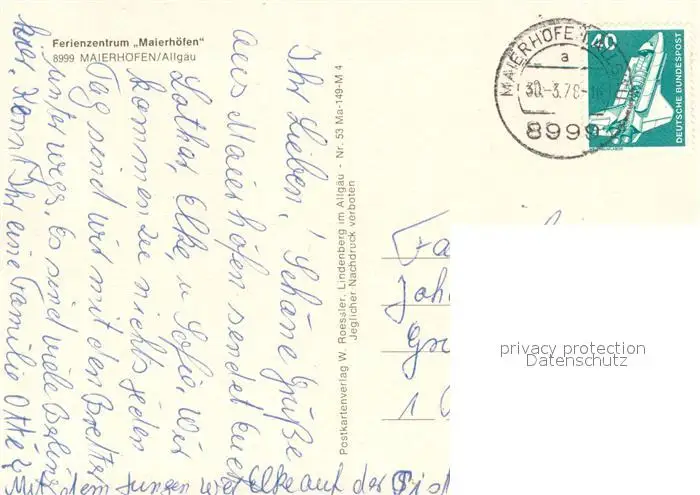 Ferienzentrum „Maierhöfen"
8999 MAIERHÖFEN/Allgäu
Ihr Lieben! Schöne Grüße
aus Maierhöfen sendet Euch
Lothar, Elke, u Sofie. Wir
kommen zu nichts jeden
Tag sind wir mit den Brettern
unterwegs. Es sind viele Berliner
hier. Kennt Ihr eine Familie Otte
Mit dem Jungen war Elke auf der Pist
Postkartenverlag W. Roessler, Lindenberg im Allgäu - Nr. 53 Ma-149-M 4
Jeglicher Nachdruck verboten
MAIERHÖFEN
a
30.-3.78
8999
40
DEUTSCHE BUNDESPOST
Fa
Joh
1
privacy protection
Datenschutz